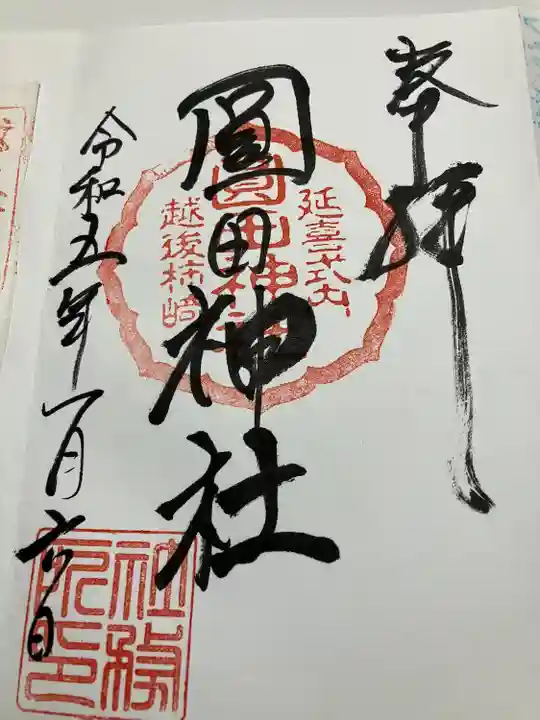 奉拝
延喜式内
圓田神社
越後柿崎
圓田神社
令和五年一月六日
社務所印